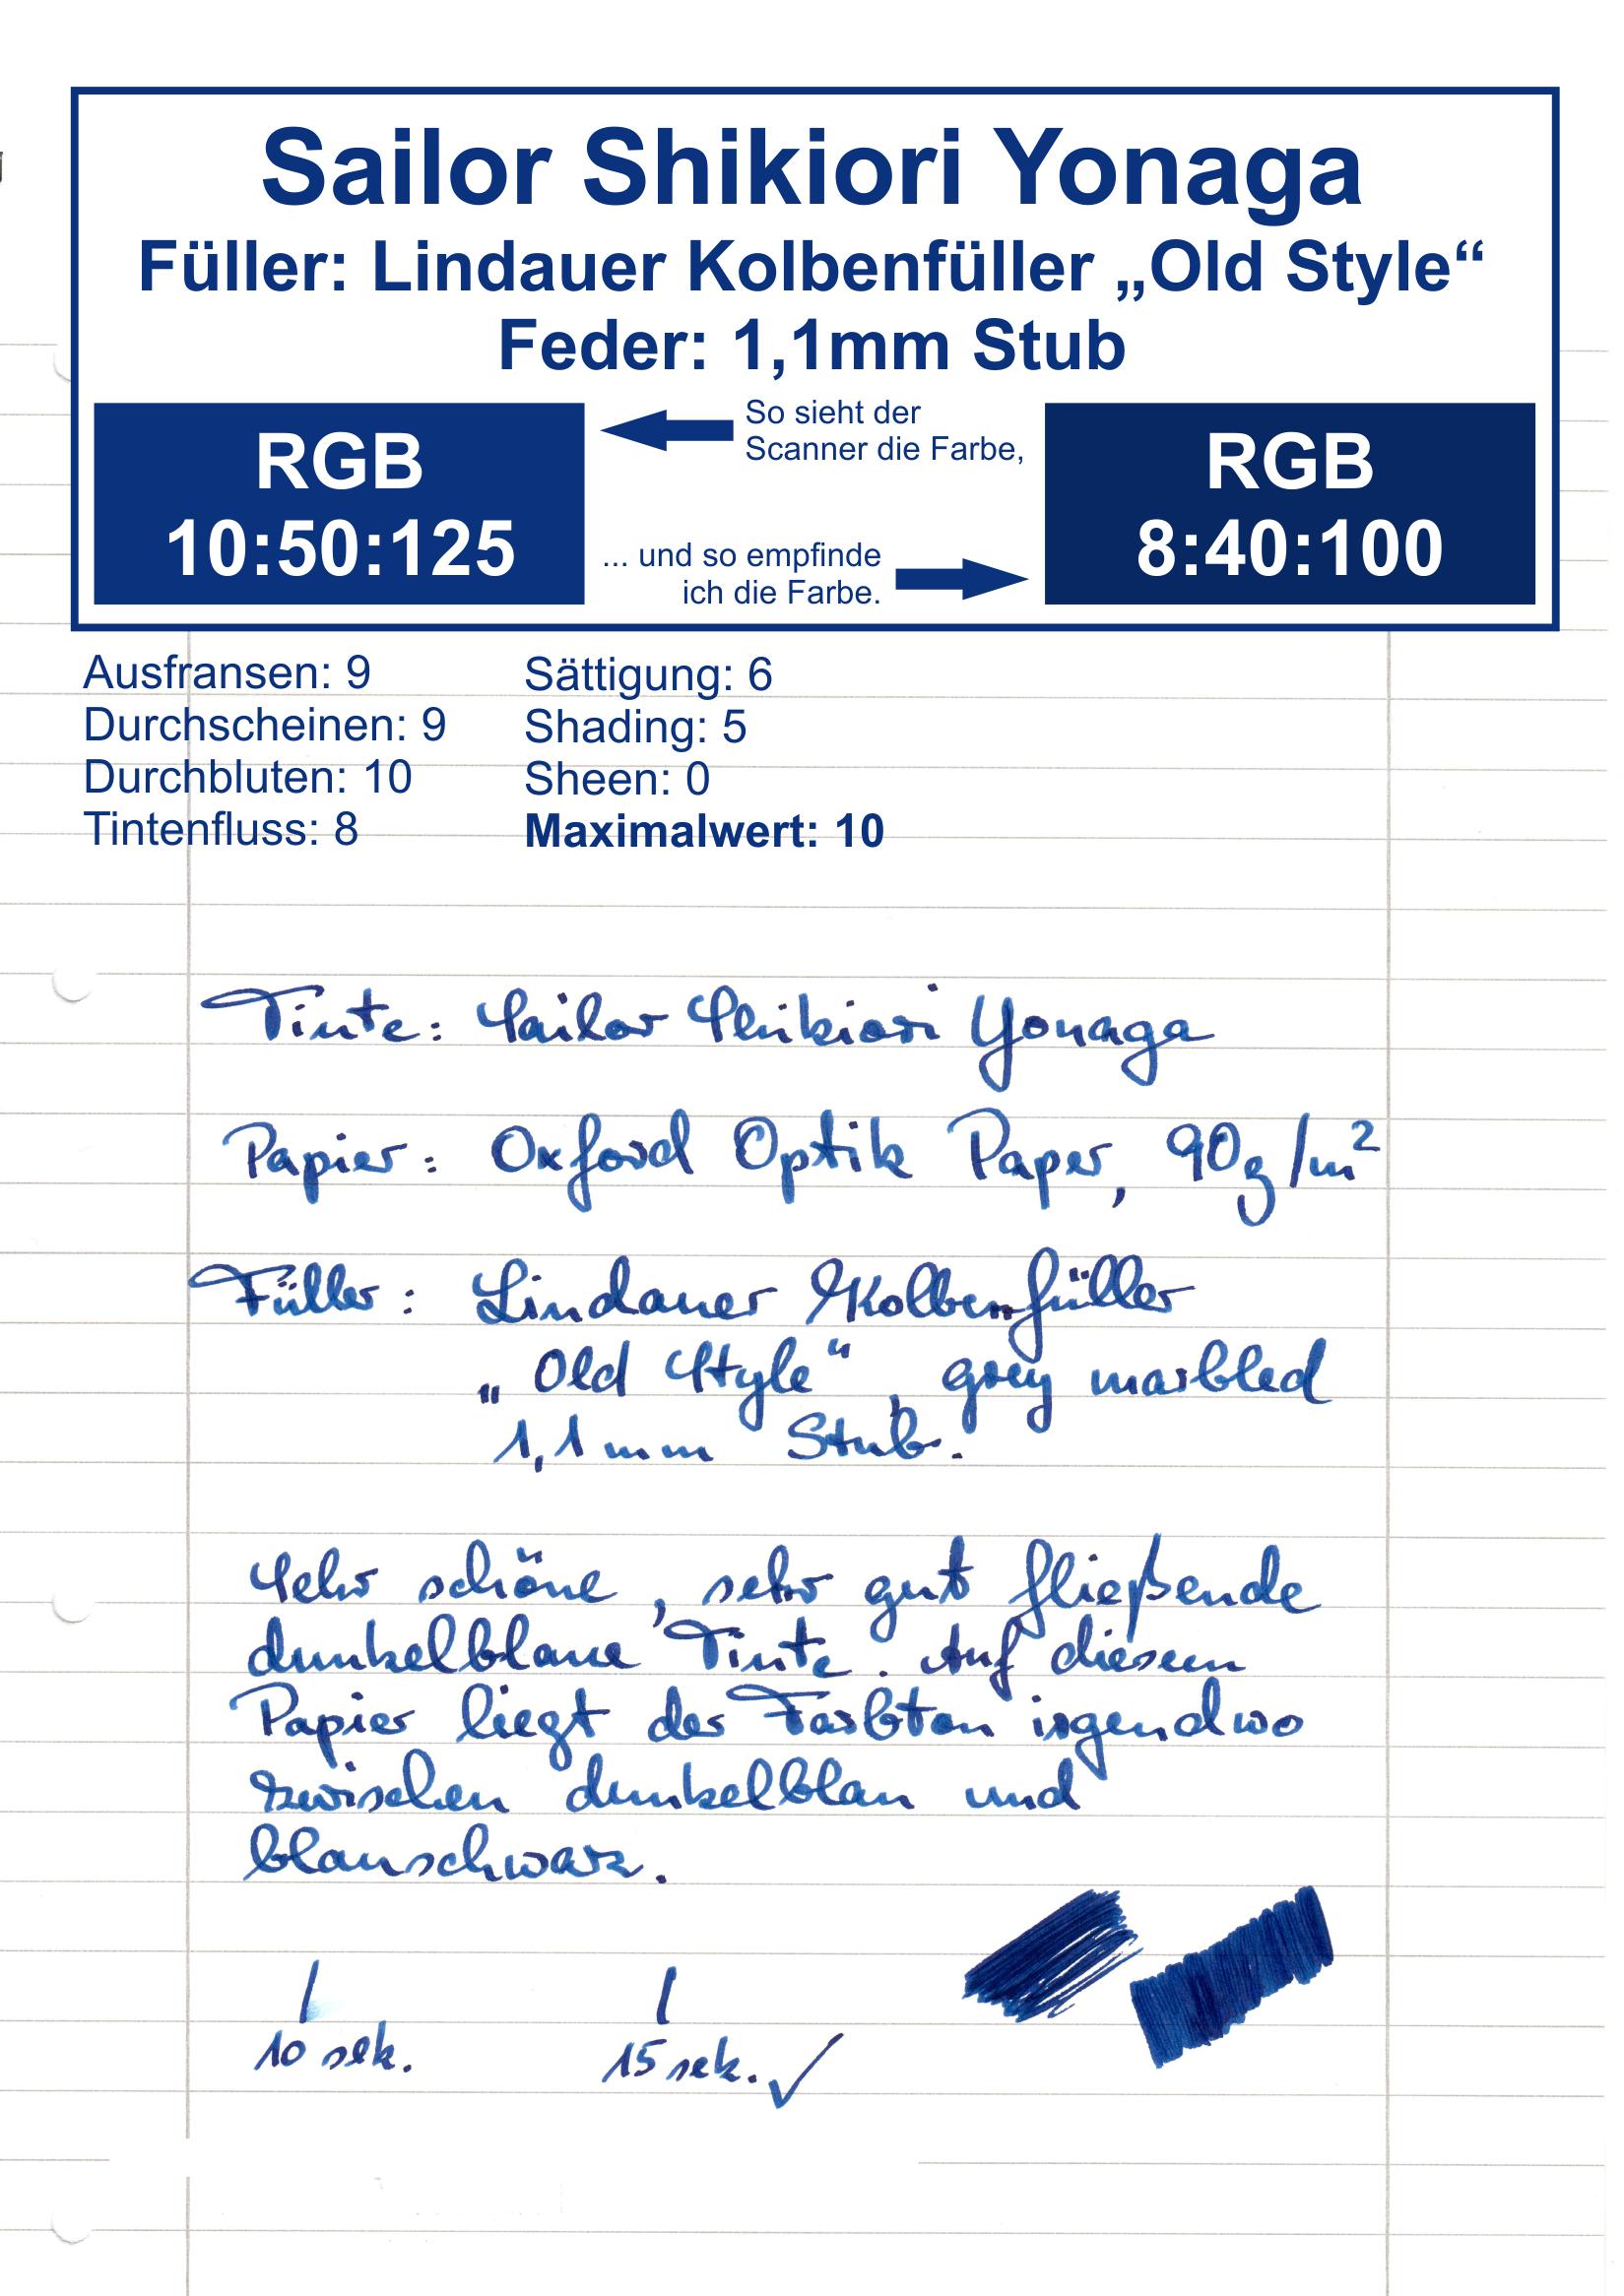 Sailor Shikiori Yonaga
Füller: Lindauer Kolbenfüller „Old Style“
Feder: 1,1mm Stub
RGB
10:50:125
So sieht der
Scanner die Farbe,
... und so empfinde
ich die Farbe.
RGB
8:40:100
Ausfransen: 9
Durchscheinen: 9
Durchbluten: 10
Tintenfluss: 8
Sättigung: 6
Shading: 5
Sheen: 0
Maximalwert: 10
Tinte: Sailor Shikiori Yonaga
Papier: Oxford Optik Paper, 90g/m²
Füller: Lindauer Kolbenfüller
„Old Style“, grey marbled
1,1mm Stub.
Sehr schöne, sehr gut fließende
dunkelblaue Tinte. Auf diesem
Papier liegt der Farbton irgendwo
zwischen dunkelblau und
blauschwarz.
10 sek.
15 sek. ✓